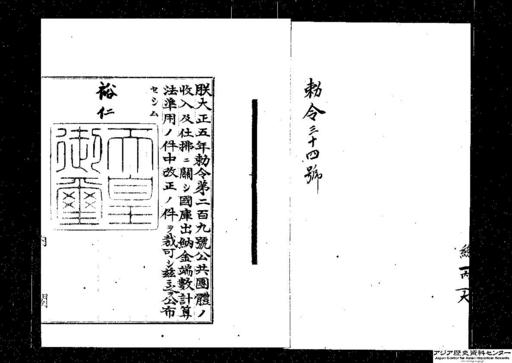 勅令三十四號
朕大正五年勅令第二百九號公共團體ノ
收入及仕拂ニ關シ國庫出納金端數計算
法準用ノ件中改正ノ件ヲ裁可シ茲ニ之ヲ公布
セシム
裕仁
天皇御璽
内閣
アジア歴史資料センター
Japan Center for Asian Historical Records